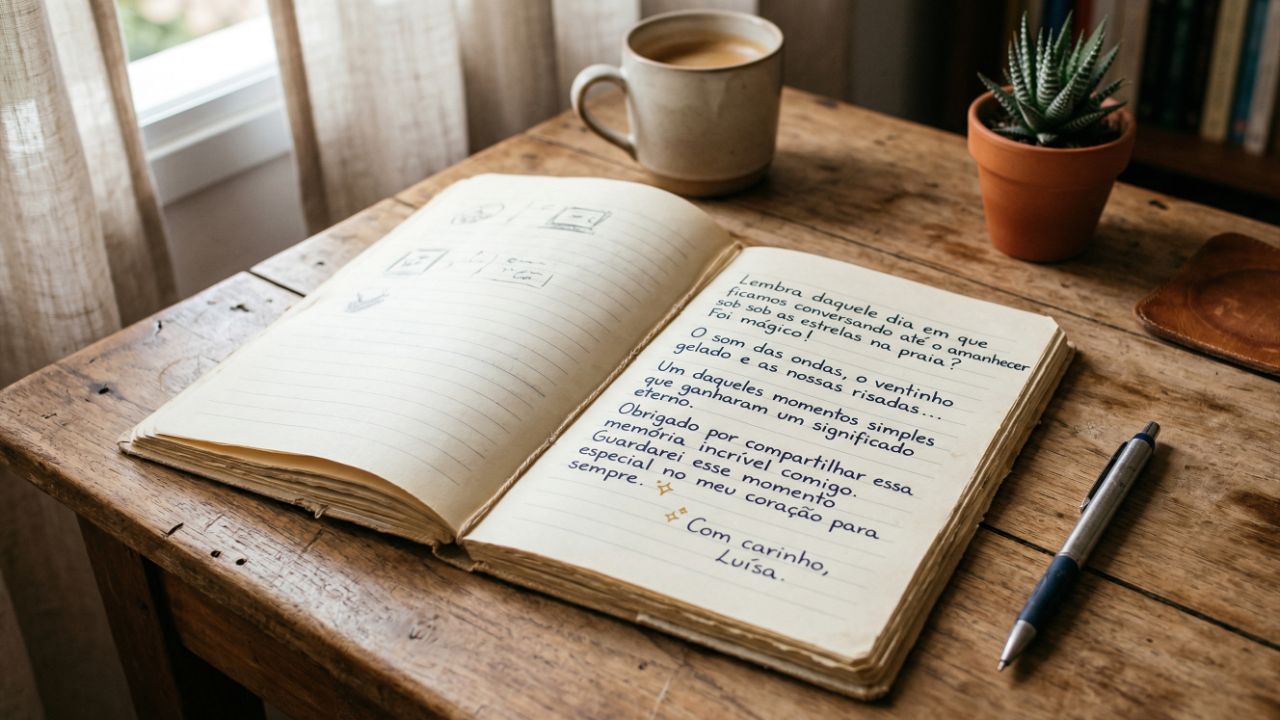 Lembra daquele dia em que
ficamos conversando até o amanhecer
sob sob as estrelas na praia?
Foi mágico!
O som das ondas, o ventinho
gelado e as nossas risadas...
Um daqueles momentos simples
que ganharam um significado
eterno.
Obrigado por compartilhar essa
memória incrível comigo.
Guardarei esse momento
especial no meu coração para
sempre.
Com carinho,
Luísa.